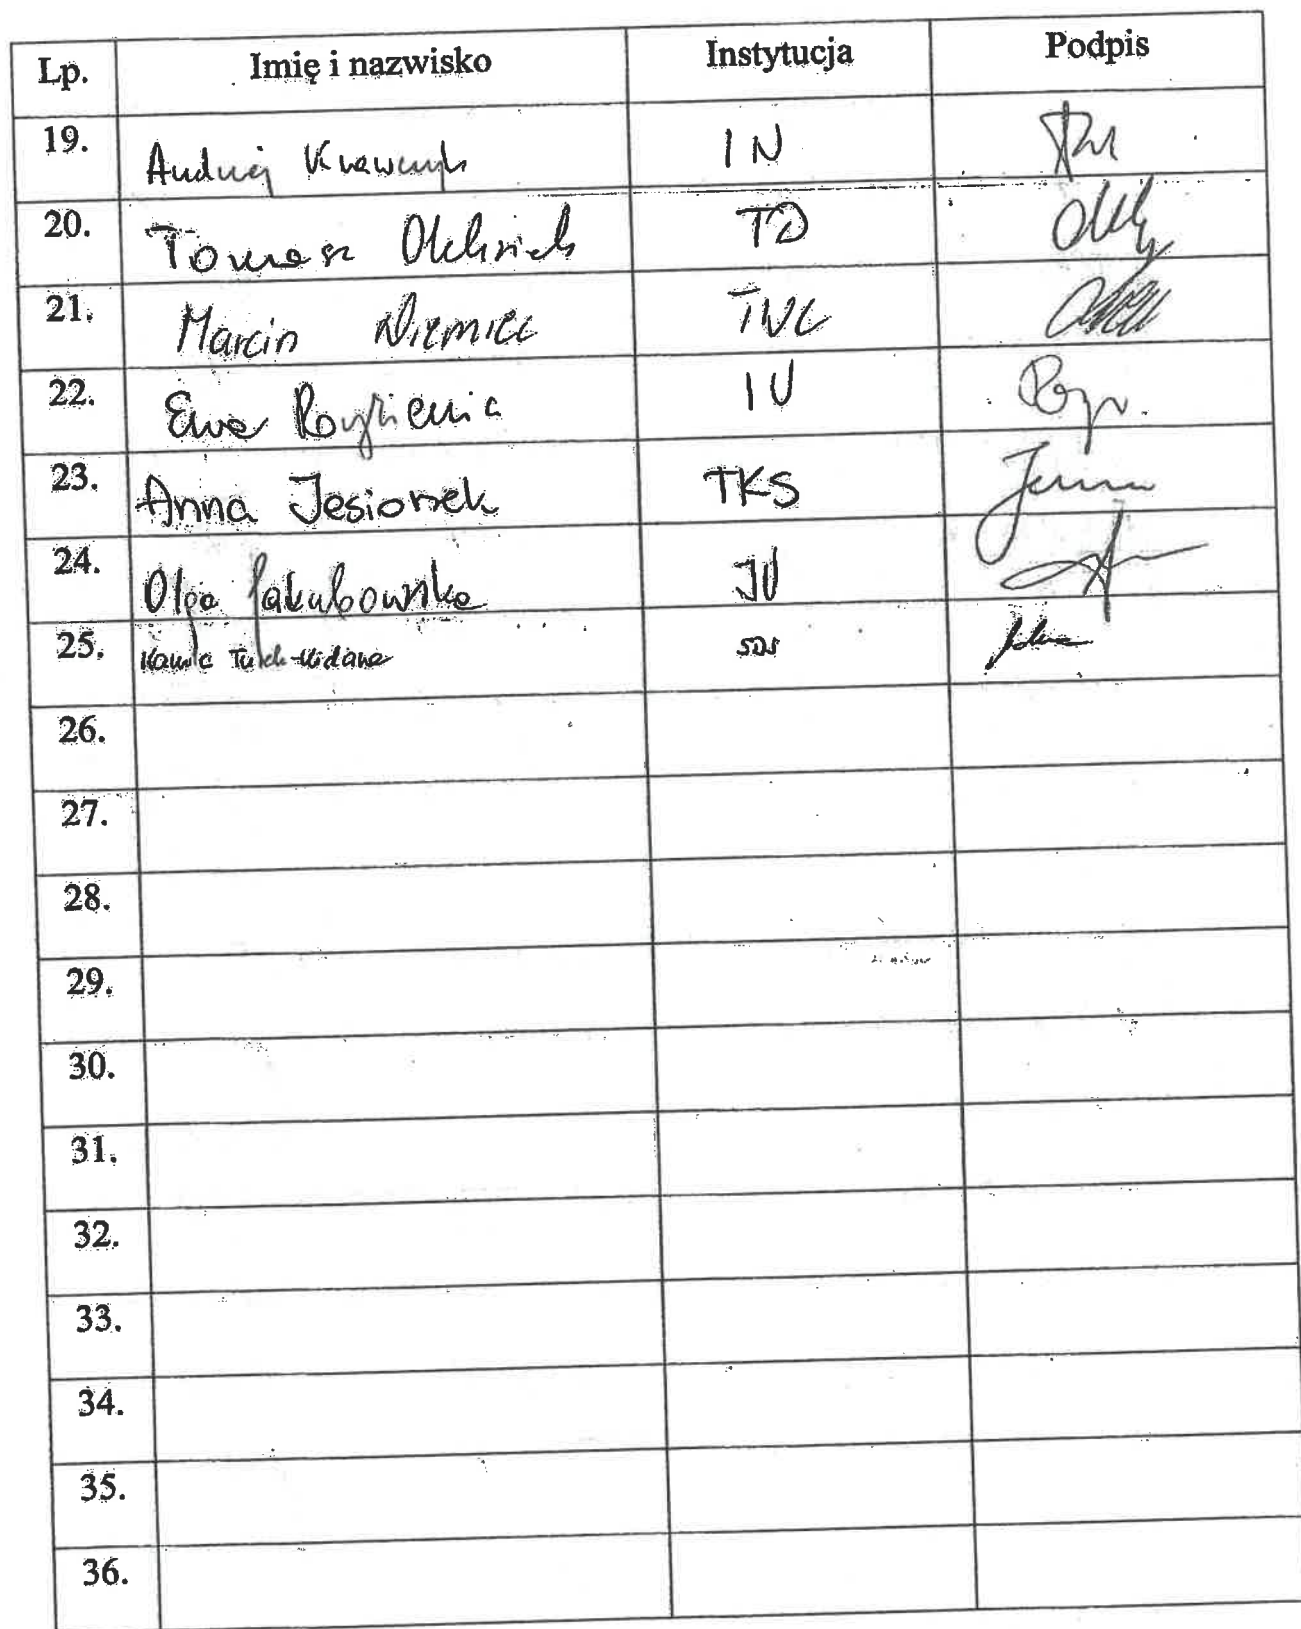 Lp. Imię i nazwisko Instytucja Podpis
19. Andrzej Krawczyk IN
20. Tomasz TD
21. Marcin Niemiec
22. Ewa IU
23. Anna Jesionek TKS
24. Olga Jakubowska IU
25. Kamila
26.
27.
28.
29.
30.
31.
32.
33.
34.
35.
36.